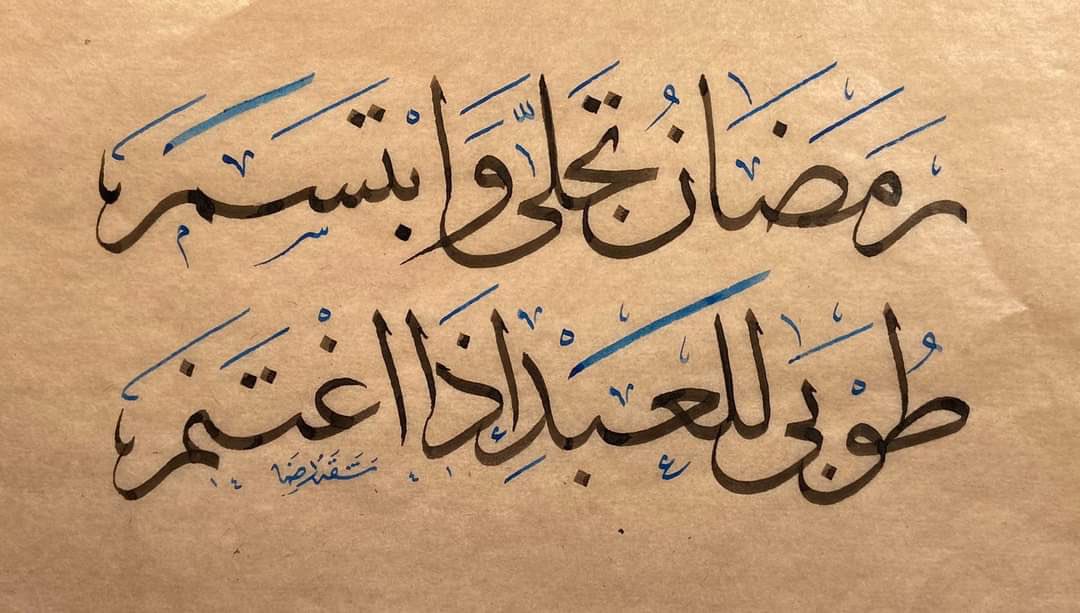 رَمَضَانُ تَجَلَّى وَابْتَسَمَ
طُوبَى لِلْعَبْدِ إِذَا اغْتَنَمَ